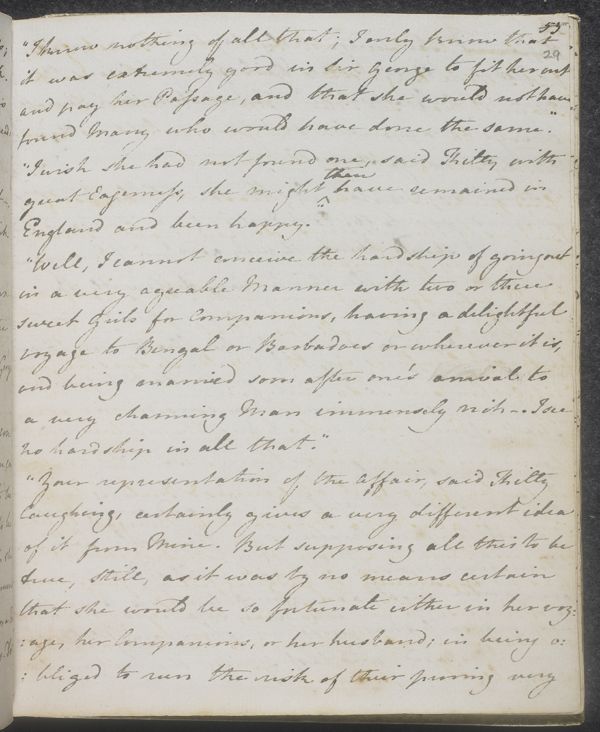 55
29
"I knew nothing of all that; I only know that
it was extremely good in Sir George to fit her out
and pay her Passage, and that she would not have
found Many who would have done the same."
"I wish she had not found one, said Kitty with
then
great Eagerness, she might ^ have remained in
England and been happy."
"Well, I cannot conceive the hardship of going out
in a very agreable Manner with two or three
sweet Girls for Companions, having a delightful
voyage to Bengal or Barbadoes or wherever it is,
and being married soon after one's arrival to
a very charming Man immensely rich -. I see
no hardship in all that."
"Your representation of the Affair, said Kitty
laughing, certainly gives a very different idea
of it from Mine. But supposing all this to be
true, still, as it was by no means certain
that she would be so fortunate either in her voy:
:age, her Companions, or her husband; in being o:
:bliged to run the risk of their proving very